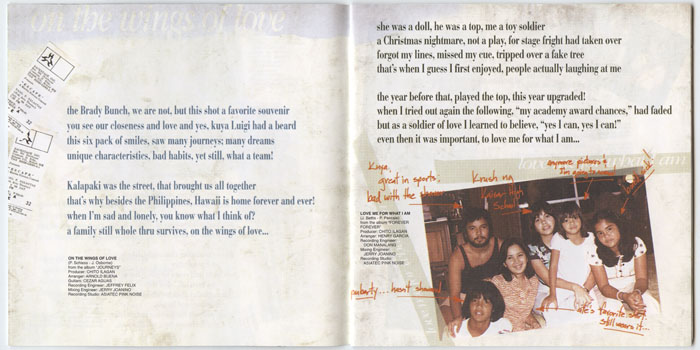 on the wings of love
32
32
the Brady Bunch, we are not, but this shot a favorite souvenir
you see our closeness and love and yes, kuya Luigi had a beard
this six pack of smiles, saw many journeys; many dreams
unique characteristics, bad habits, yet still, what a team!
Kalapaki was the street, that brought us all together
that's why besides the Philippines, Hawaii is home forever and ever!
when I'm sad and lonely, you know what I think of?
a family still whole thru survives, on the wings of love...
ON THE WINGS OF LOVE
from the album "JOURNEYS"
Producer: CHITO ILAGAN
Arranger: ARNOLD BUENA
Guitars: CEZAR AGUAS
Recording Engineer: JEFFREY FELIX
Mixing Engineer: JERRY JOANINO
Recording Studio: ASIATEC PINK NOISE
she was a doll, he was a top, me a toy soldier
a Christmas nightmare, not a play, for stage fright had taken over
forgot my lines, missed my cue, tripped over a fake tree
that's when I guess I first enjoyed, people actually laughing at me
the year before that, played the top, this year upgraded!
when I tried out again the following, "my academy award chances," had faded
but as a soldier of love I learned to believe, "yes I can, yes I can!"
even then it was important, to love me for what I am...
love me for what I am
great in sports,
bad with the
Krush na
High
School
anymore pictures &
LOVE ME FOR WHAT I AM
from the album "FOREVER
FOREVER"
Producer: CHITO ILAGAN
Arranger: HENRY GARCIA
Recording Engineer:
DOM MANALANG
Mixing Engineer:
JERRY JOANINO
Recording Studio:
ASIATEC PINK NOISE
puberty... hasn't
ate's favorite shirt.
still wears it...